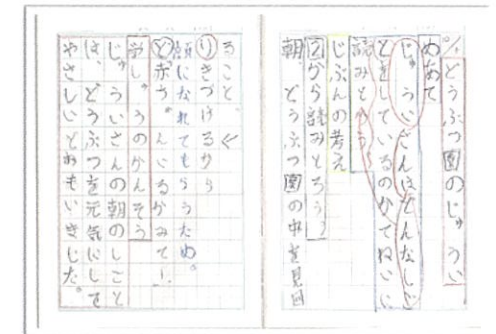 どうぶつ園のじゅうい
めあて
じゅういさんはどんなしご
とをしているのかていねいに
読みとろう
じぶんの考え
から読みとろう
朝 どうぶつ園の中を見回
ること。
りきづけるから
顔になれてもらうため。
と赤ちゃんいるかみて
学しゅうのかんそう
じゅういさんの朝のしごと
は、どうぶつを元気にしてて
やさしいとおもいました。